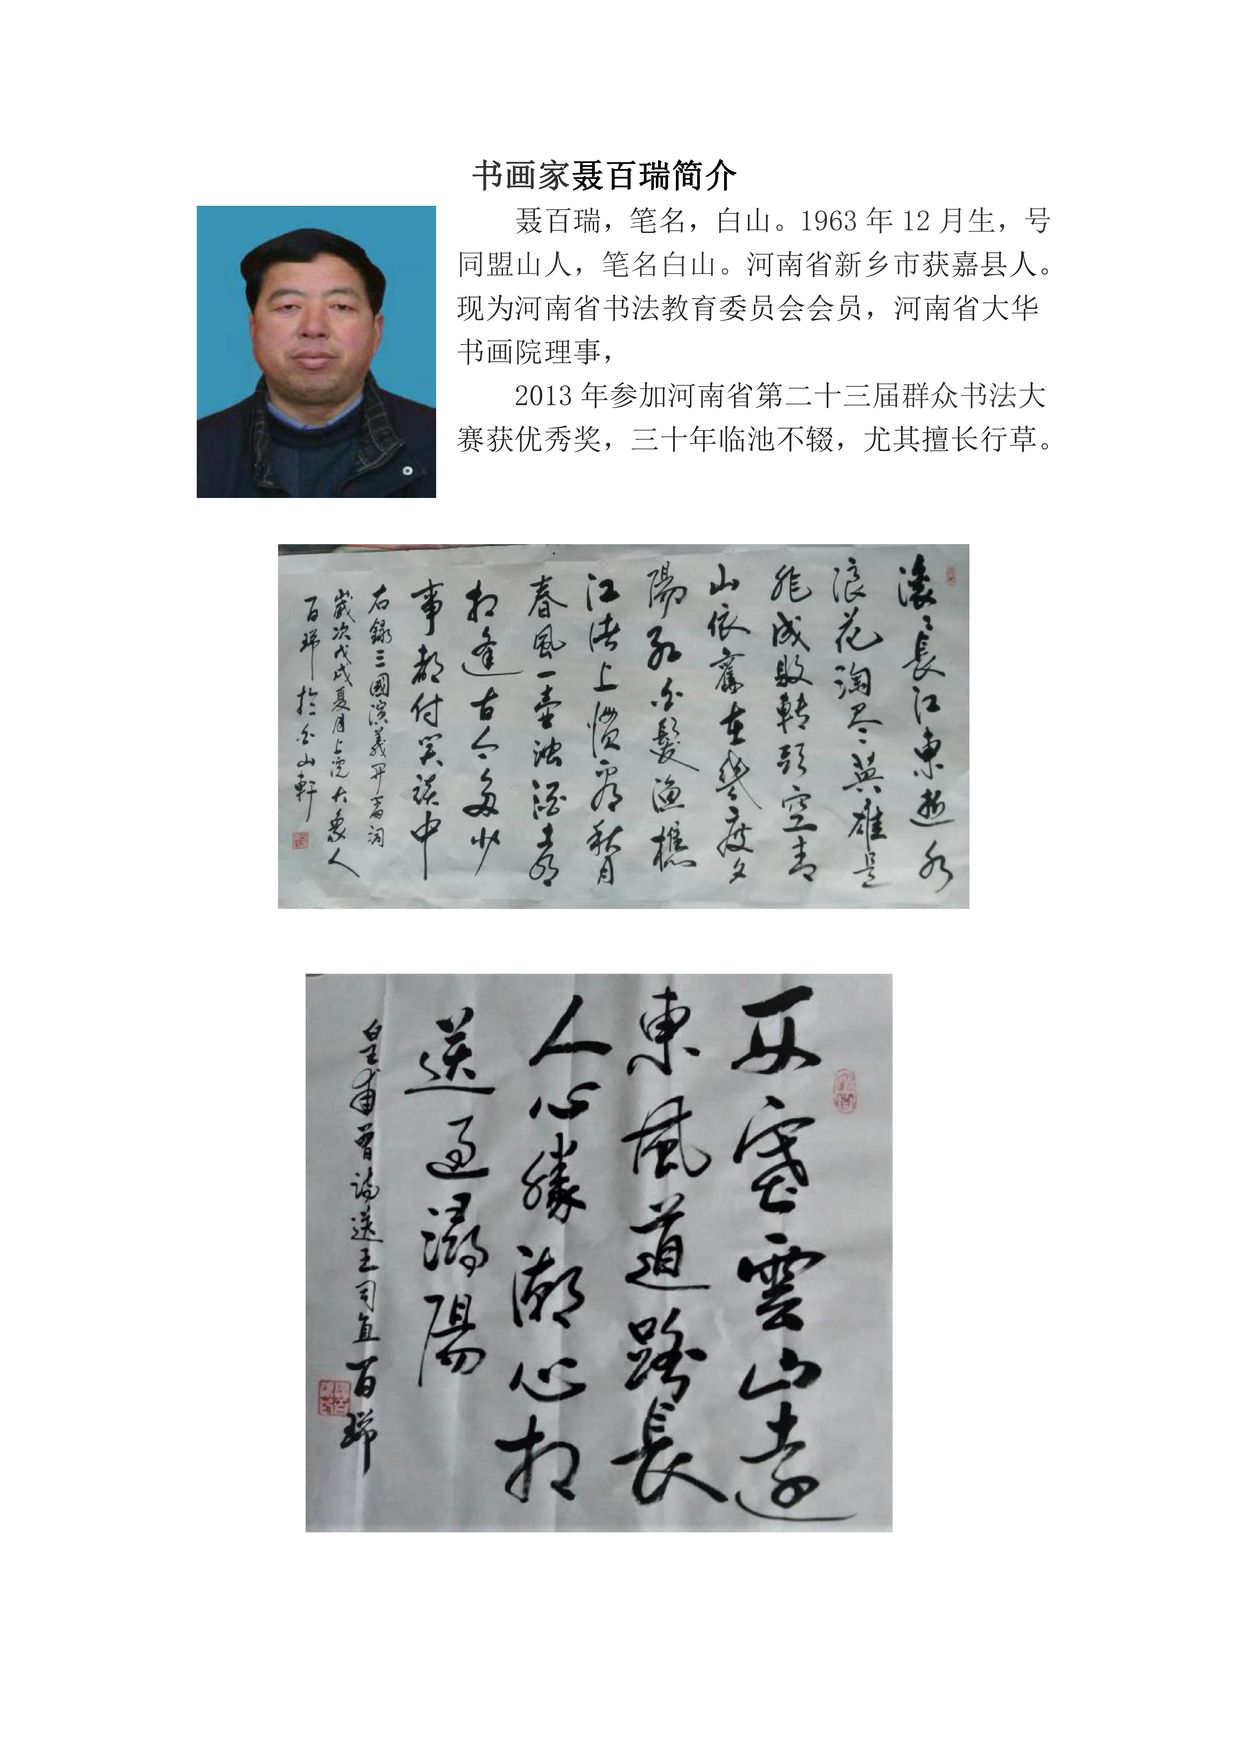 书画家聂百瑞简介
聂百瑞，笔名，白山。1963年12月生，号
同盟山人，笔名白山。河南省新乡市获嘉县人。
现为河南省书法教育委员会会员，河南省大华
书画院理事，
2013年参加河南省第二十三届群众书法大
赛获优秀奖，三十年临池不辍，尤其擅长行草。
滚々長江東逝水
浪花淘尽英雄是
非成敗轉頭空青
山依舊在幾度夕
陽紅白髮漁樵
江渚上慣看秋月
春風一壺濁酒喜
相逢古今多少
事都付笑談中
右錄三國演義開篇詞
歲次戊戌夏月上浣大象人
百瑞於白山軒
西塞雲山遠
東風道路長
人心勝潮心相
送過潯陽
皇甫曾詩送王司直百瑞